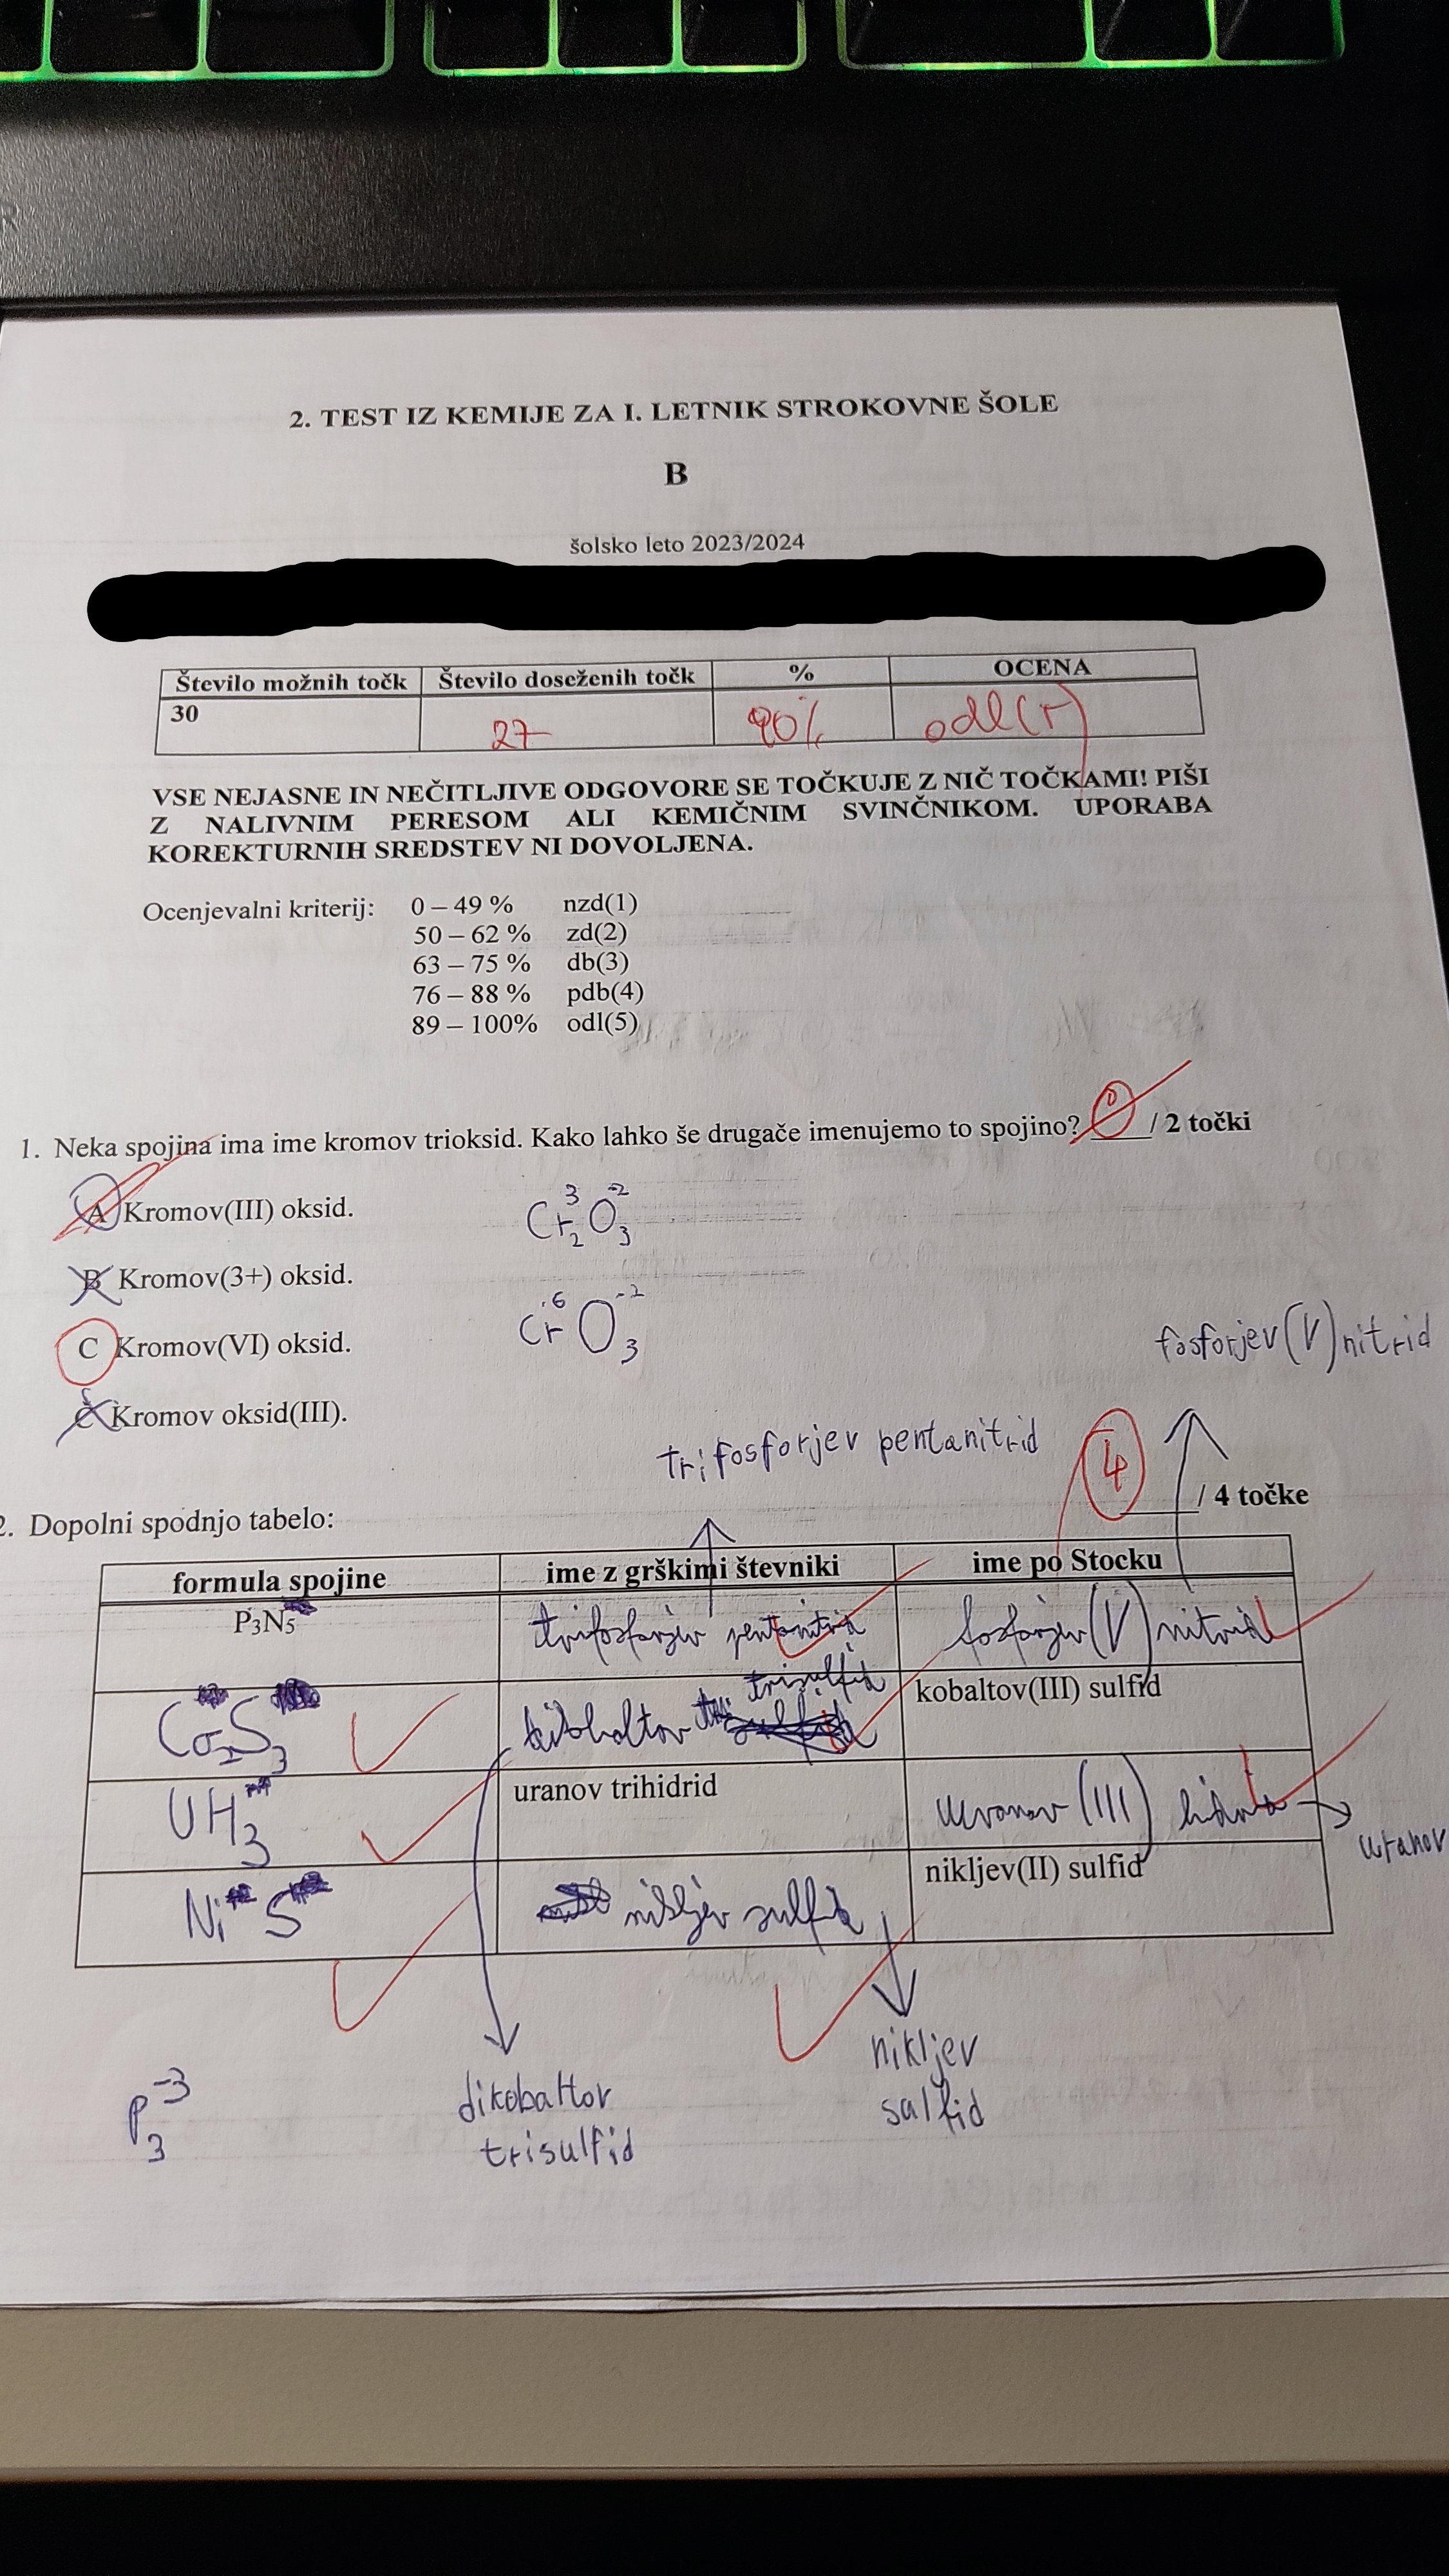 2. TEST IZ KEMIJE ZA I. LETNIK STROKOVNE ŠOLE
B
šolsko leto 2023/2024
Število možnih točk Število doseženih točk % OCENA
30 27 90% odl(5)
VSE NEJASNE IN NEČITLJIVE ODGOVORE SE TOČKUJE Z NIČ TOČKAMI! PIŠI
Z NALIVNIM PERESOM ALI KEMIČNIM SVINČNIKOM. UPORABA
KOREKTURNIH SREDSTEV NI DOVOLJENA.
Ocenjevalni kriterij: 0 – 49 % nzd(1)
50 – 62 % zd(2)
63 – 75 % db(3)
76 – 88 % pdb(4)
89 – 100% odl(5)
1. Neka spojina ima ime kromov trioksid. Kako lahko še drugače imenujemo to spojino? 0 / 2 točki
A Kromov(III) oksid. Cr₂³O₃⁻²
B Kromov(3+) oksid.
C Kromov(VI) oksid. Cr⁶O₃⁻²
Č Kromov oksid(III).
fosforjev(V)nitrid
trifosforjev pentanitrid
4 / 4 točke
2. Dopolni spodnjo tabelo:
formula spojine ime z grškimi števniki ime po Stocku
P₃N₅ trifosforjev pentanitrid fosforjev(V)nitrid
Co₂S₃ dikobaltov trisulfid kobaltov(III) sulfid
UH₃ uranov trihidrid uranov(III) hidrid
uranov
NiS nikljev sulfid nikljev(II) sulfid
nikljev
salfid
P₃⁻³
dikobaltov
trisulfid